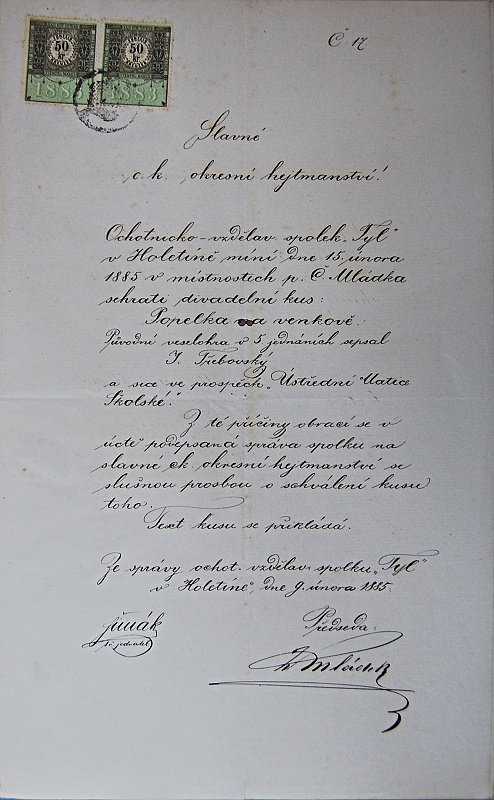 50 kr 50 kr
1883 1883
Č. 17
Slavné
c. k. okresní hejtmanství!
Ochotnicko-vzdělav. spolek „Tyl“
v Holetíně míní dne 15. února
1885 v místnostech p. Č. Mládka
sehráti divadelní kus:
Popelka na venkově.
Původní veselohra v 5 jednáních sepsal
J. Třebovský
a sice ve prospěch „Ústřední Matice
Školské“.
Z té příčiny obrací se v
úctě podepsaná správa spolku na
slavné ck. okresní hejtmanství se
slušnou prosbou o schválení kusu
toho.
Text kusu se přikládá.
Ze správy ochot. vzdělav. spolku „Tyl“
v Holetíně, dne 9. února 1885.
Předseda:
jednatel
Mládek